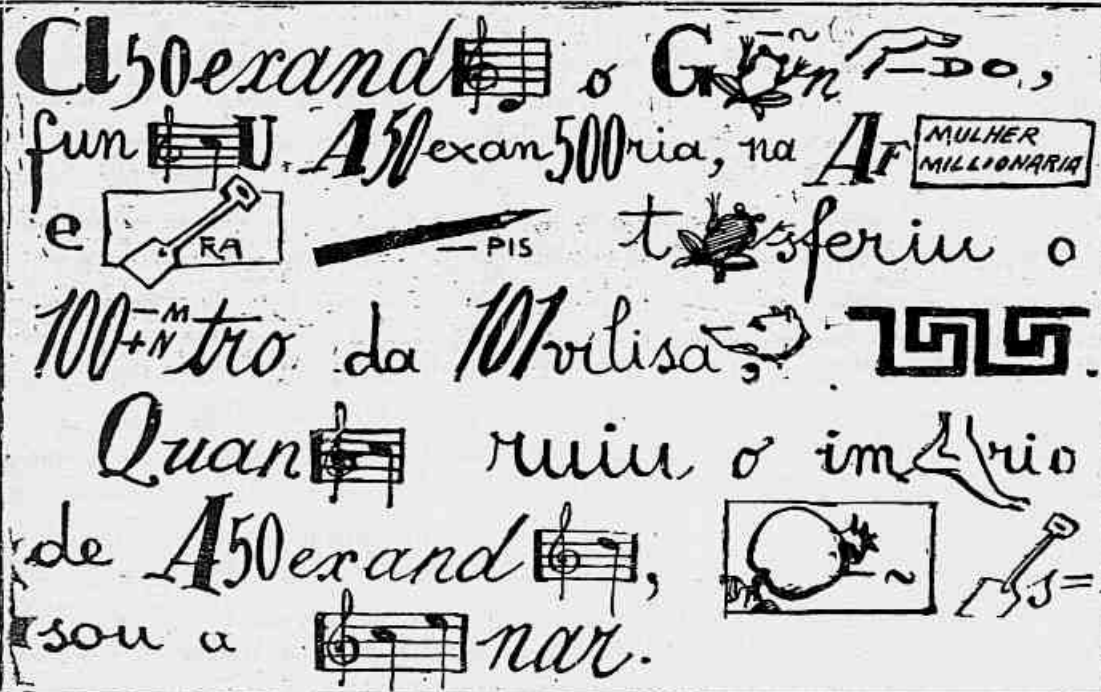 Cl50exand o G -~ n -DO,
fun U. A50exan500ria, na AF MULHER MILLIONARIA
e RA -PIS t sferiu o
100 -M +N tro da 101vilisa,
Quan ruiu o im rio
de A50exand, -~ s=
sou a nar.